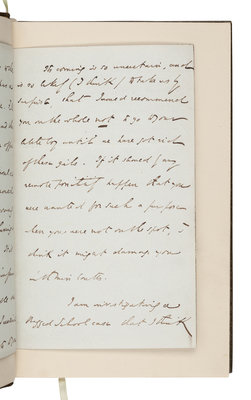 Its coming is so uncertain, and
is so likely (I think) to take us by
surprise, that I would recommend
you on the whole not to go
until we have got rid
of these girls. If it should (by any
remote possibility) happen that you
were wanted for such a purpose
when you were not on the spot, I
think it might damage you
with Miss Coutts.
I am investigating a
Ragged School case that I think